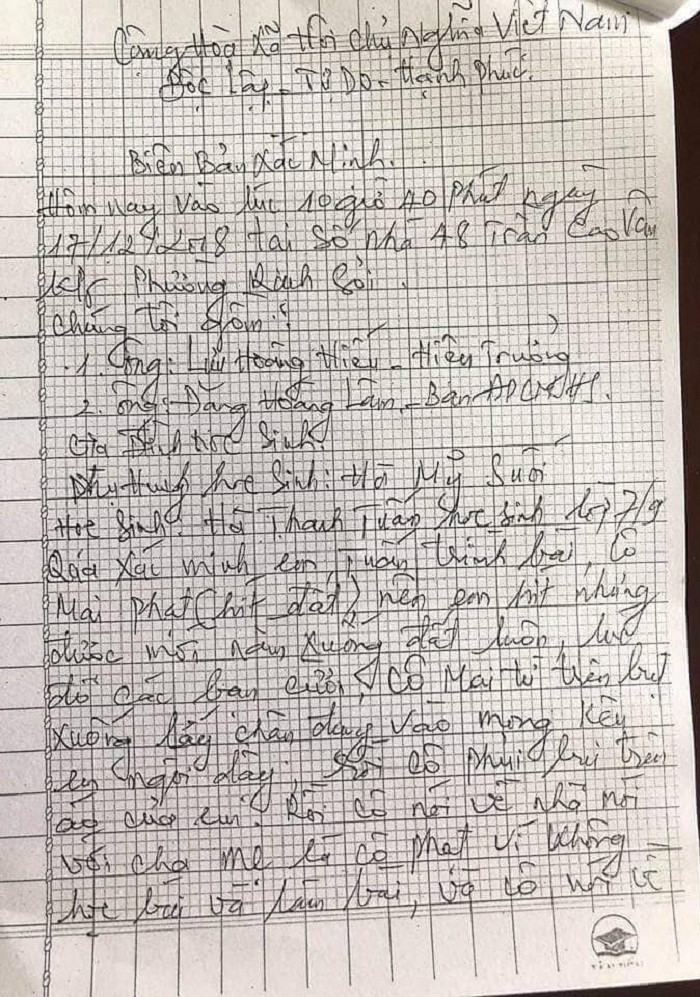 Cộng Hoà Xã Hội Chủ Nghĩa Việt Nam
Độc Lập - Tự Do - Hạnh Phúc.
Biên Bản Xác Minh.
Hôm nay vào lúc 10 giờ 40 phút ngày
17/12/2018 tại số nhà 48 Trần Cao Vân
Phường Rạch Sỏi.
Chúng tôi gồm:
1. Ông: Lưu Hoàng Hiếu - Hiệu Trưởng
2. Ông: Đặng Hoàng Lâm - Ban ĐDCMHS.
Gia Đình học Sinh:
Phụ Huynh học Sinh: Hồ Mỹ Suối
Học Sinh: Hồ Thanh Tuấn học sinh lớp 7/9
Qua xác minh em Tuấn trình bài, Cô
Mai phạt (hít đất), nên em hít nhưng
được mõi nằm xuống đất luôn, lúc
đó các bạn cười, Cô Mai từ trên bụt
xuống lấy chân vào mong kêu
em ngồi dậy, rồi cô phụi bụi trên
áo của em. Rồi cô nói về nhà nói
với cha mẹ là cô phạt vì không
học bài và làm bài, và cô nói về